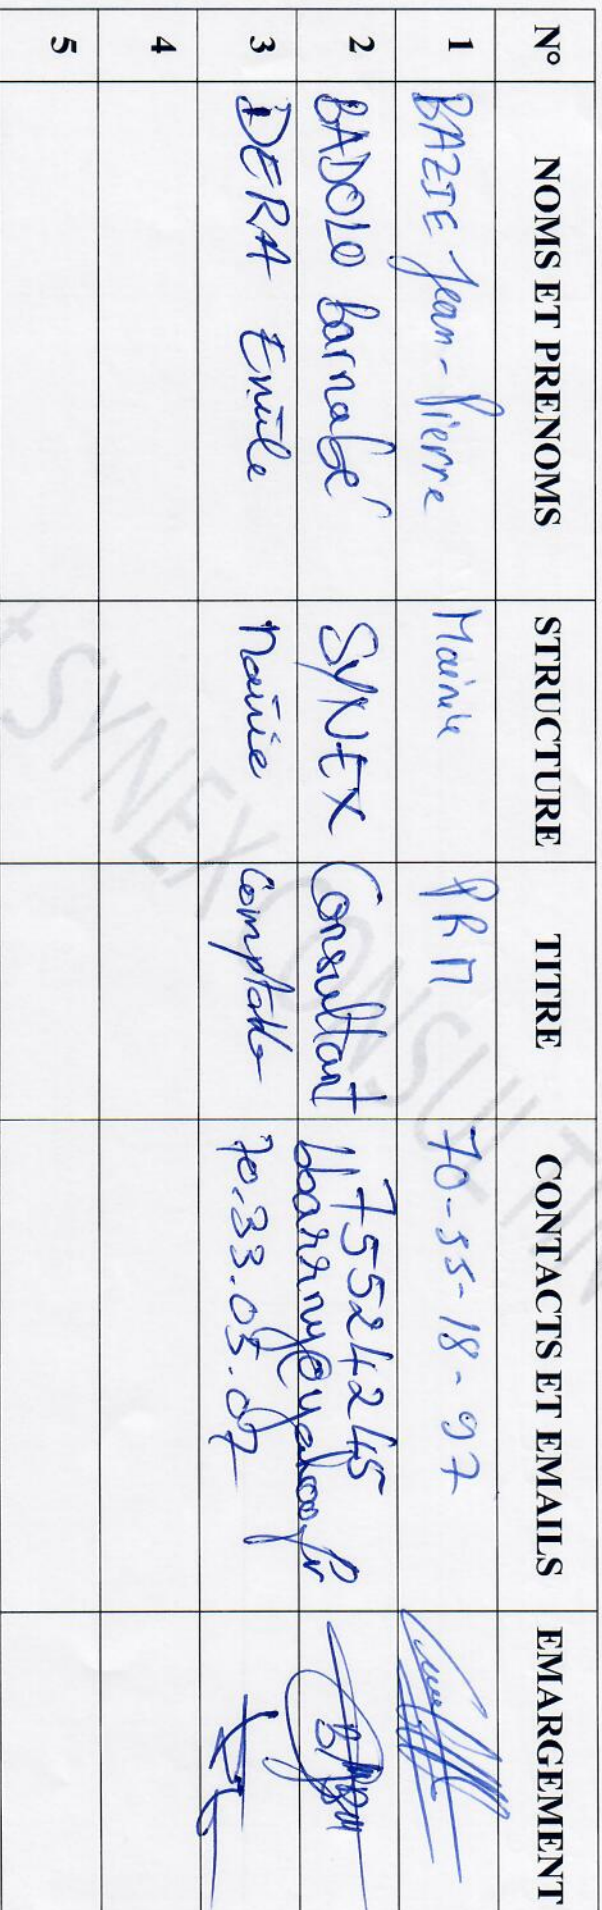 N° NOMS ET PRENOMS STRUCTURE TITRE CONTACTS ET EMAILS EMARGEMENT
1 BAZIE Jean-Pierre Mairie PRM 70-55-18-97
2 BADOLO Barnabé SYNEX Consultant 75524245
bbarrny@yahoo.fr
3 DERA Emile Mairie Comptable 70.33.05.07
4
5
SYNEX CONSULTIN